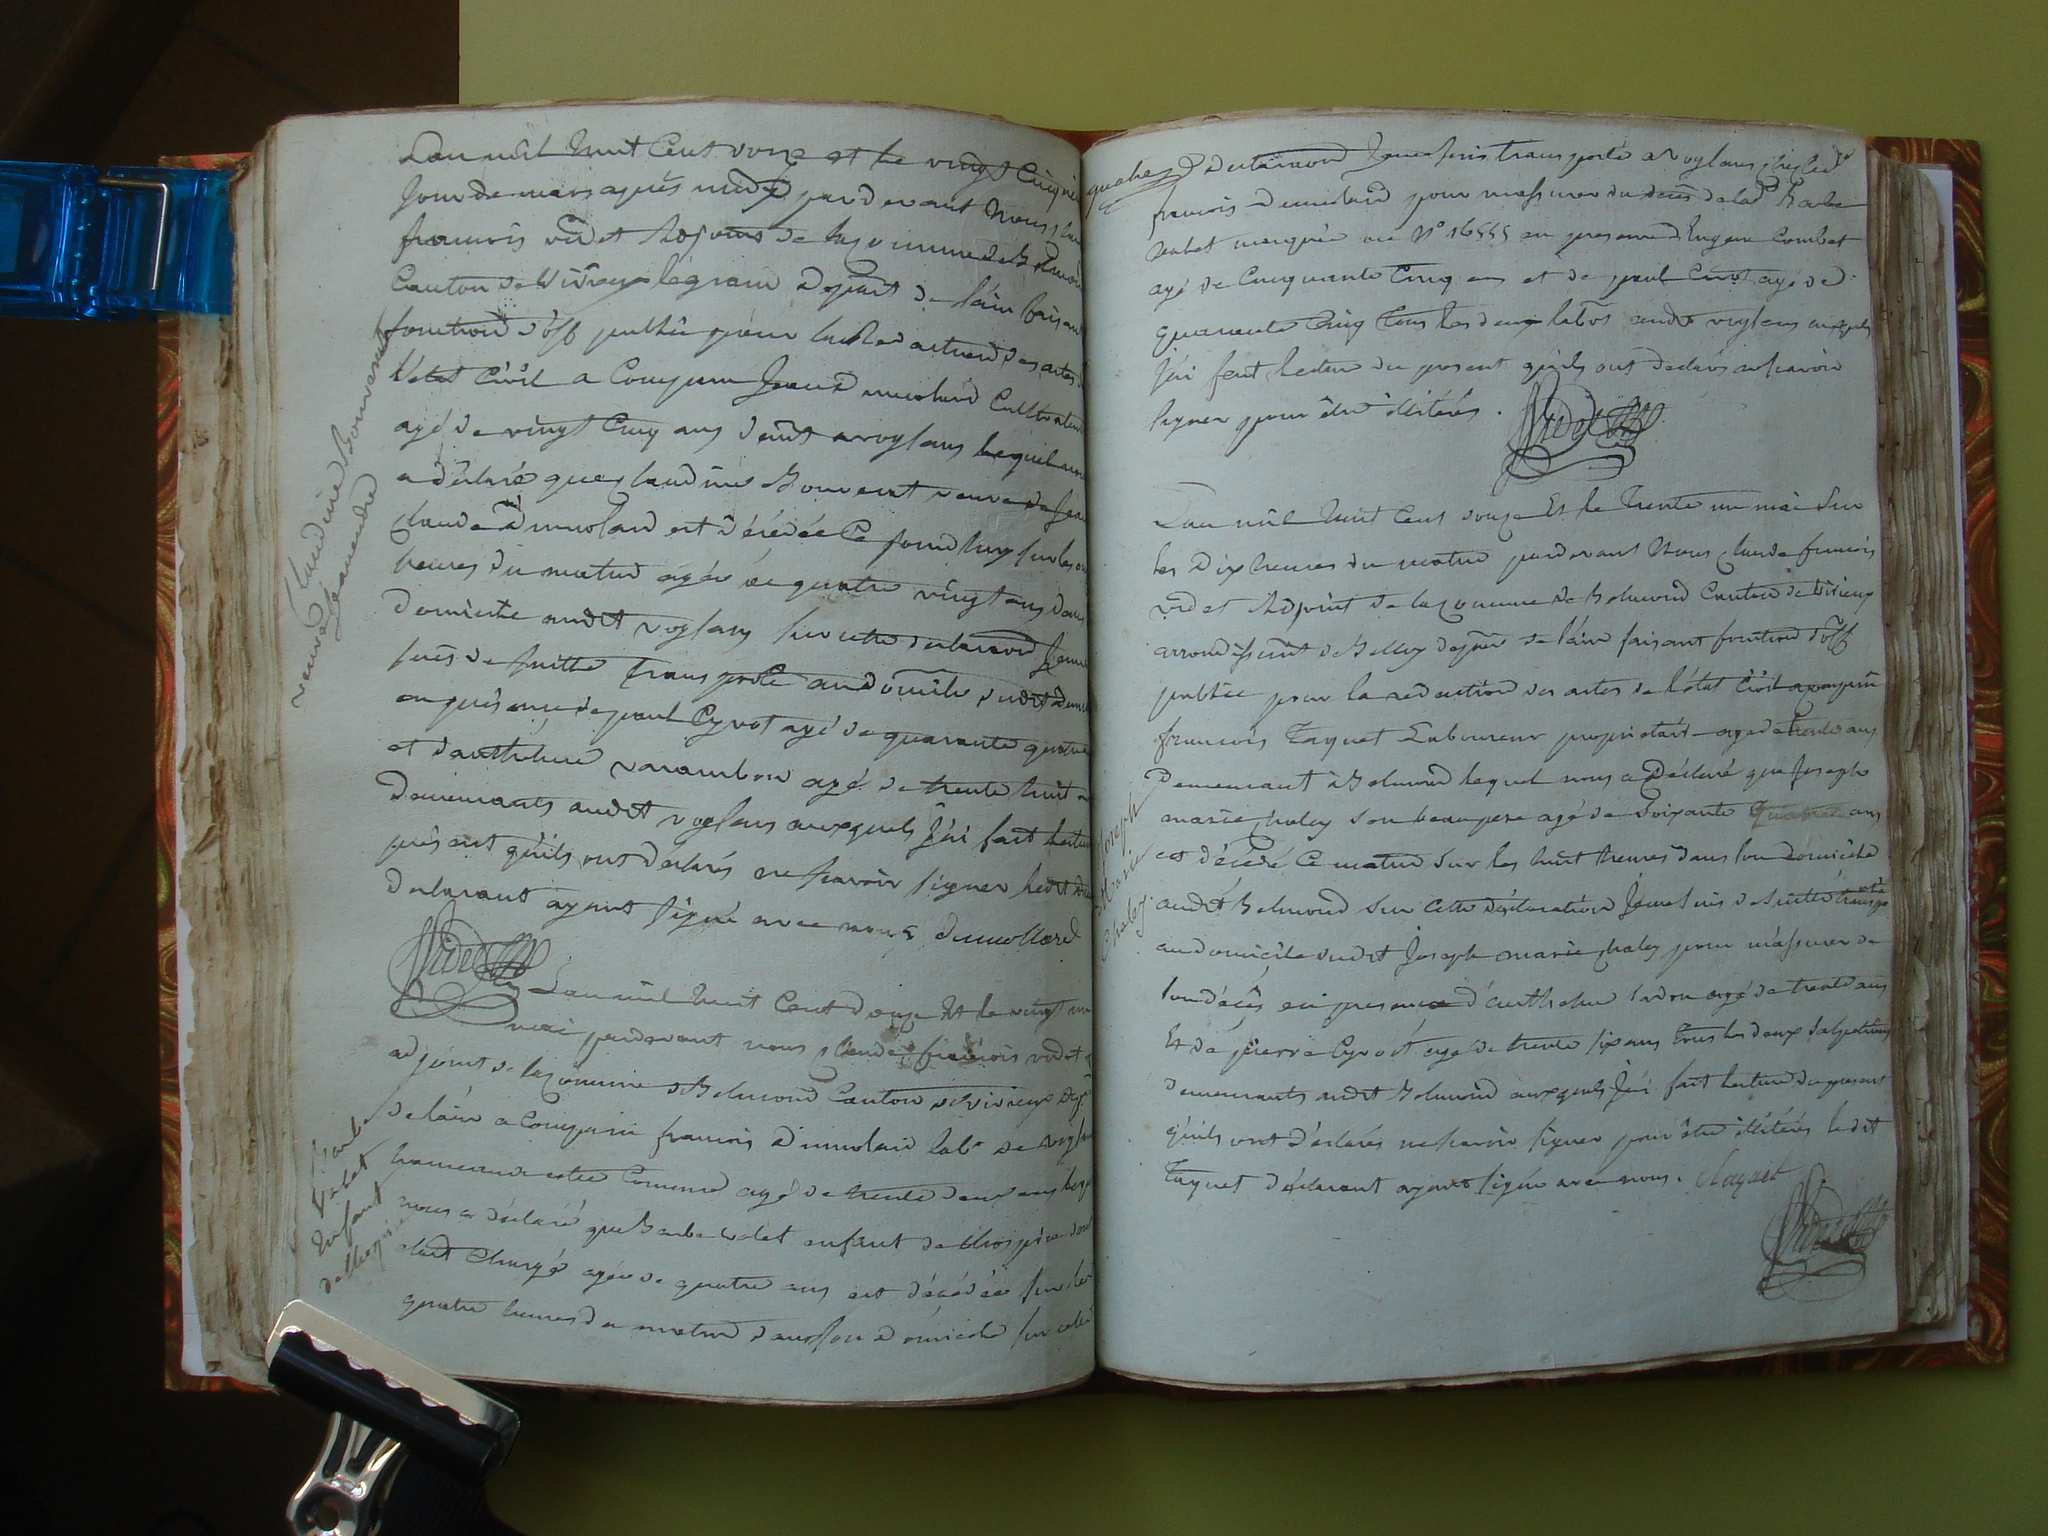 L'an mil huit Cent douze et le vingt Cinq
Jour de mars après midy pardevant Nous
francois videt Adjoint de la Commune de Belmond
Canton de Virieux le grand Depart de l'ain faisant
fonction d'off publie pour la Redaction des actes de
l'état Civil a Comparu Dumolard Cultivateur
agé de vingt Cinq ans dudit voglans lequel nous
a déclaré que Claudine Bonvarat veuve de Jean
Claude Dumolard est décédée Ce jourd'huy sur les
heures du matin agée de quatre vingt ans dans
domicile audit voglans sur cette déclaration Je me
suis de suitte transporté au domicile dudit
en présence de paul Cyvot agé de quarante quatre
et d'anthelme varambon agé de trente huit
Demeurants audit voglans auxquels J'ai fait lecture
présent qu'ils ont déclarés ne scavoir signer ledit
declarant ayant signé avec nous Dumollard
Videt
L'an mil huit Cent douze Et le vingt un
mai pardevant nous Claude francois videt
adjoint de la Commune de Belmond Canton de virieux
de l'ain a Comparu francois Dumolard labr de voglans
hameau de cette Commune agé de trente deux ans lequel
nous a déclaré que Barbe enfant de l'hospice dont
était Chargé agée de quatre ans est décédée sur les
quatre heures du matin dans son domicile sur cette
Claudine Bonvarat
veuve
Barbe
Enfant
de l'hospice
declaration Je me suis transporté a voglans chez led
francois Dumolard pour m'assurer du decès de lad Barbe
marquée au N° 16555 en presence d'Eugene Combet
agé de Cinquante Cinq ans et de paul Cyvot agé de
quarante Cinq tous les deux labrs audit voglans auxquels
J'ai fait lecture du present qu'ils ont declarés ne scavoir
signer pour être illitérés.
Videt
L'an mil huit Cent douze Et le Trente un mai Sur
les Dix heures du matin pardevant Nous Claude francois
videt Adjoint de la Commune de Belmond Canton de Virieux
arrondissemt de Belley depart de l'ain faisant fonction d'off
publie pour la redaction des actes de l'état Civil a comparu
francois Taquet Laboureur propriétaire agé de trente ans
Demeurant à Belmond lequel nous a Déclaré que Joseph
marie Chaley Son beaupere agé de Soixante quatre ans
est décédé Ce matin Sur les huit heures dans son domicile
audit Belmond Sur Cette déclaration Je me suis de suitte transporté
au domicile dudit Joseph marie Chaley pour m'assurer de
son décès en presence d'anthelme agé de trente ans
Et de pierre Cyvot agé de trente six ans tous les deux
demeurants audit Belmond auxquels J'ai fait lecture du present
qu'ils ont déclarés ne scavoir signer pour être illitérés ledit
Taquet déclarant ayant signé avec nous. Taquet
Videt
Joseph
Marie
Chaley